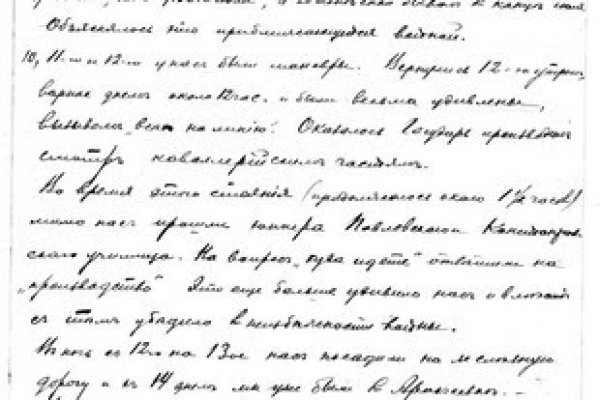 Объяснялось это приближающейся войной.
10, 11-го и 12-го у нас были маневры. Вернулись 12-го утром,
днем около 12 час. и были весьма удивлены,
вызовом "всем на линию". Оказалось Государь производил
смотр кавалерийским частям.
Во время этого стояния (продолжалось около 1½ часов)
мимо нас прошли юнкера Павловского
училища. На вопрос "куда идете" отвечали на
"производство" Это еще больше удивило нас и
с тем убедило в неизбежности войны.
В ночь с 12го на 13ое нас посадили на железную
дорогу и 14 днем мы уже были в